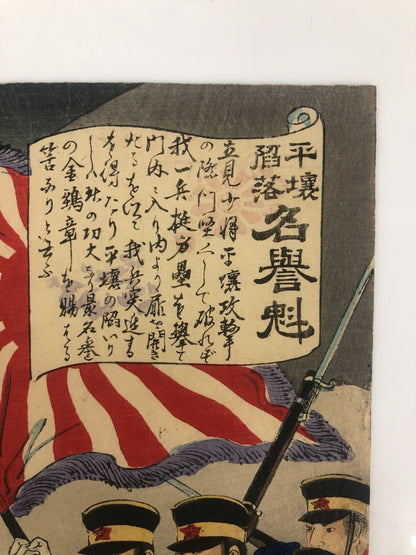 平壌
陥落
名譽魁
立見少将平壌攻撃
の際門堅くして破れず
我一兵挺身塁を攀て
門内に入り内より扉を開き
たるを以て我兵突進する
を得たり平壌の陥いり
し八外の功大なり最名誉
の金鵄章を賜はる
筈なりと云ふ